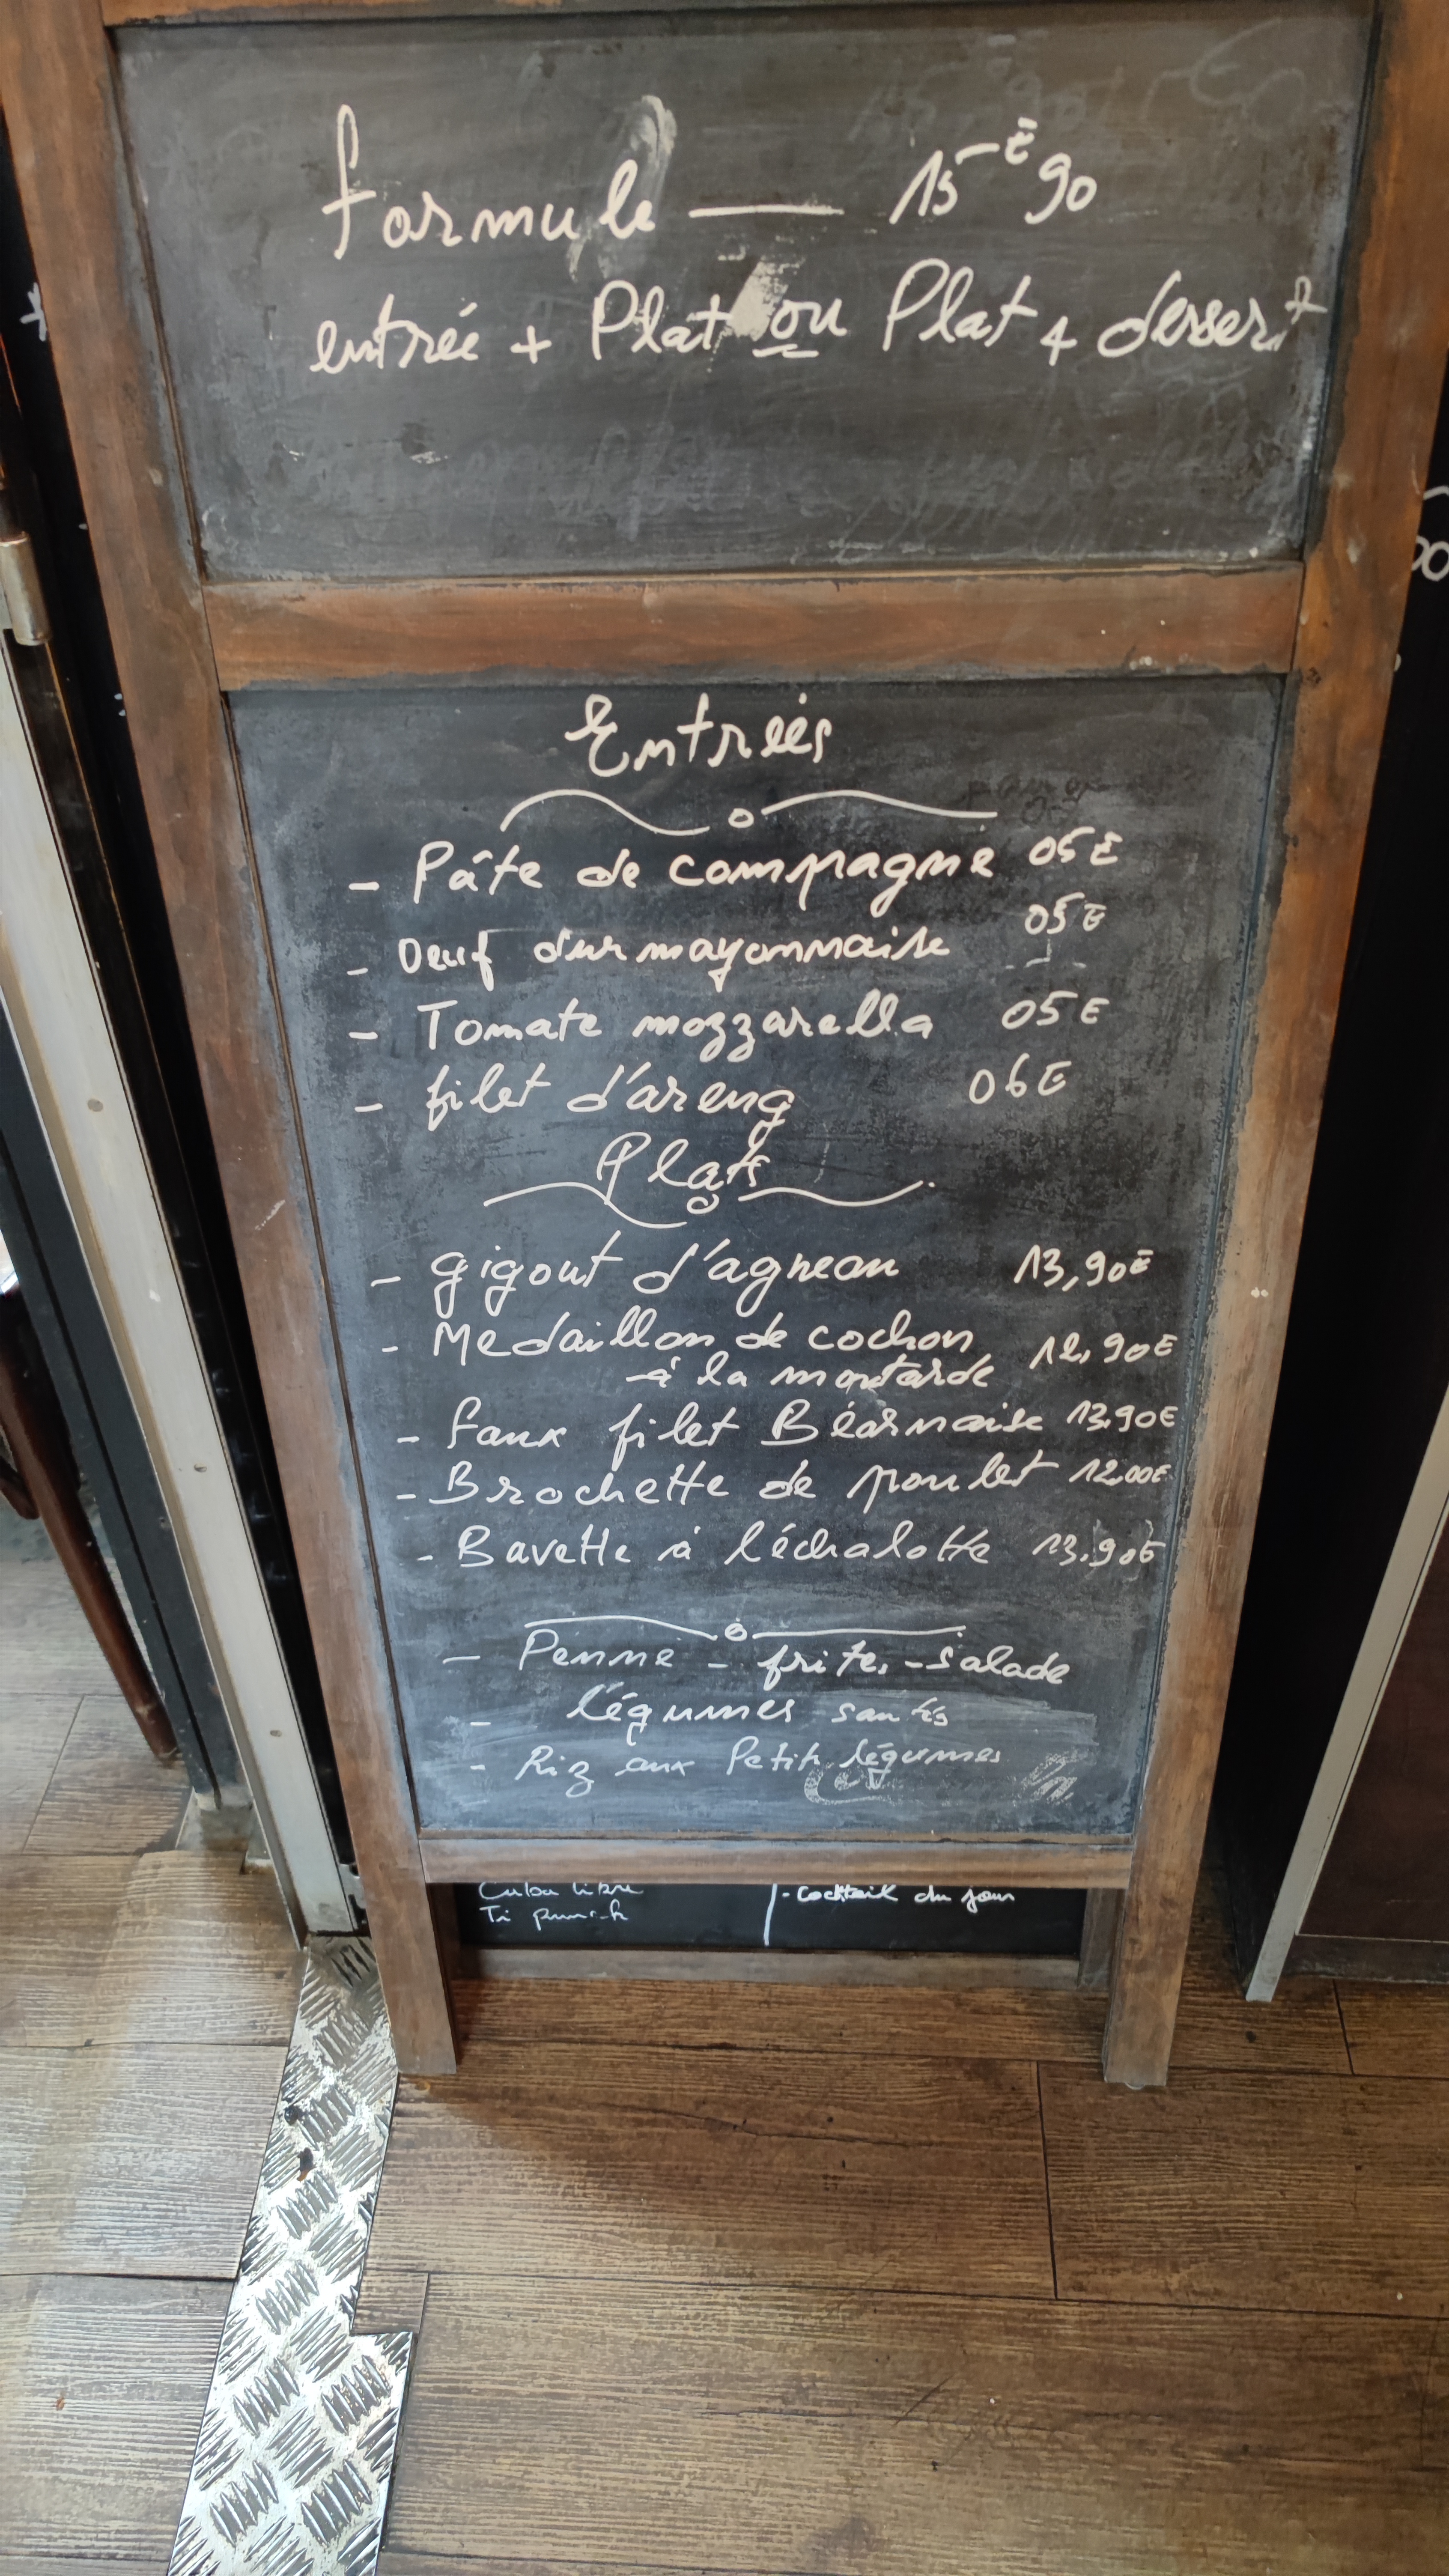 formule — 15€90
entrée + Plat ou Plat + dessert
Entrées
- Pâte de compagne 05€
- Oeuf dur mayonnaise 05€
- Tomate mozzarella 05€
- filet d'areng 06€
Plats
- gigout d'agneau 13,90€
- Medaillon de cochon 12,90€
à la moutarde
- faux filet Béarnaise 13,90€
- Brochette de poulet 12,00€
- Bavette à l'échalotte 13,90€
- Penne - frites - salade
- légumes sautés
- Riz aux Petits légumes
Cuba libre
Ti punch
- Cocktail du jour